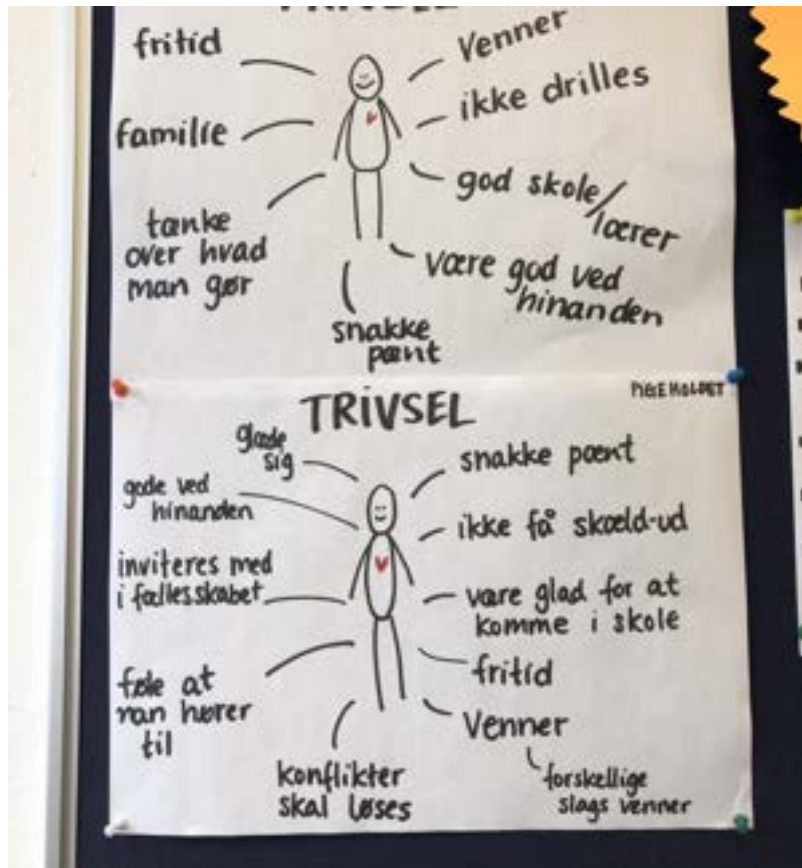 TRIVSEL
fritid
familie
tænke
over hvad
man gør
snakke
pænt
Venner
ikke drilles
god skole/
lærer
være god ved
hinanden
PIGEHOLDET
TRIVSEL
glæde
sig
gode ved
hinanden
inviteres med
i fællesskabet
føle at
man hører
til
konflikter
skal løses
snakke pænt
ikke få skæld-ud
være glad for at
komme i skole
fritid
Venner
forskellige
slags venner